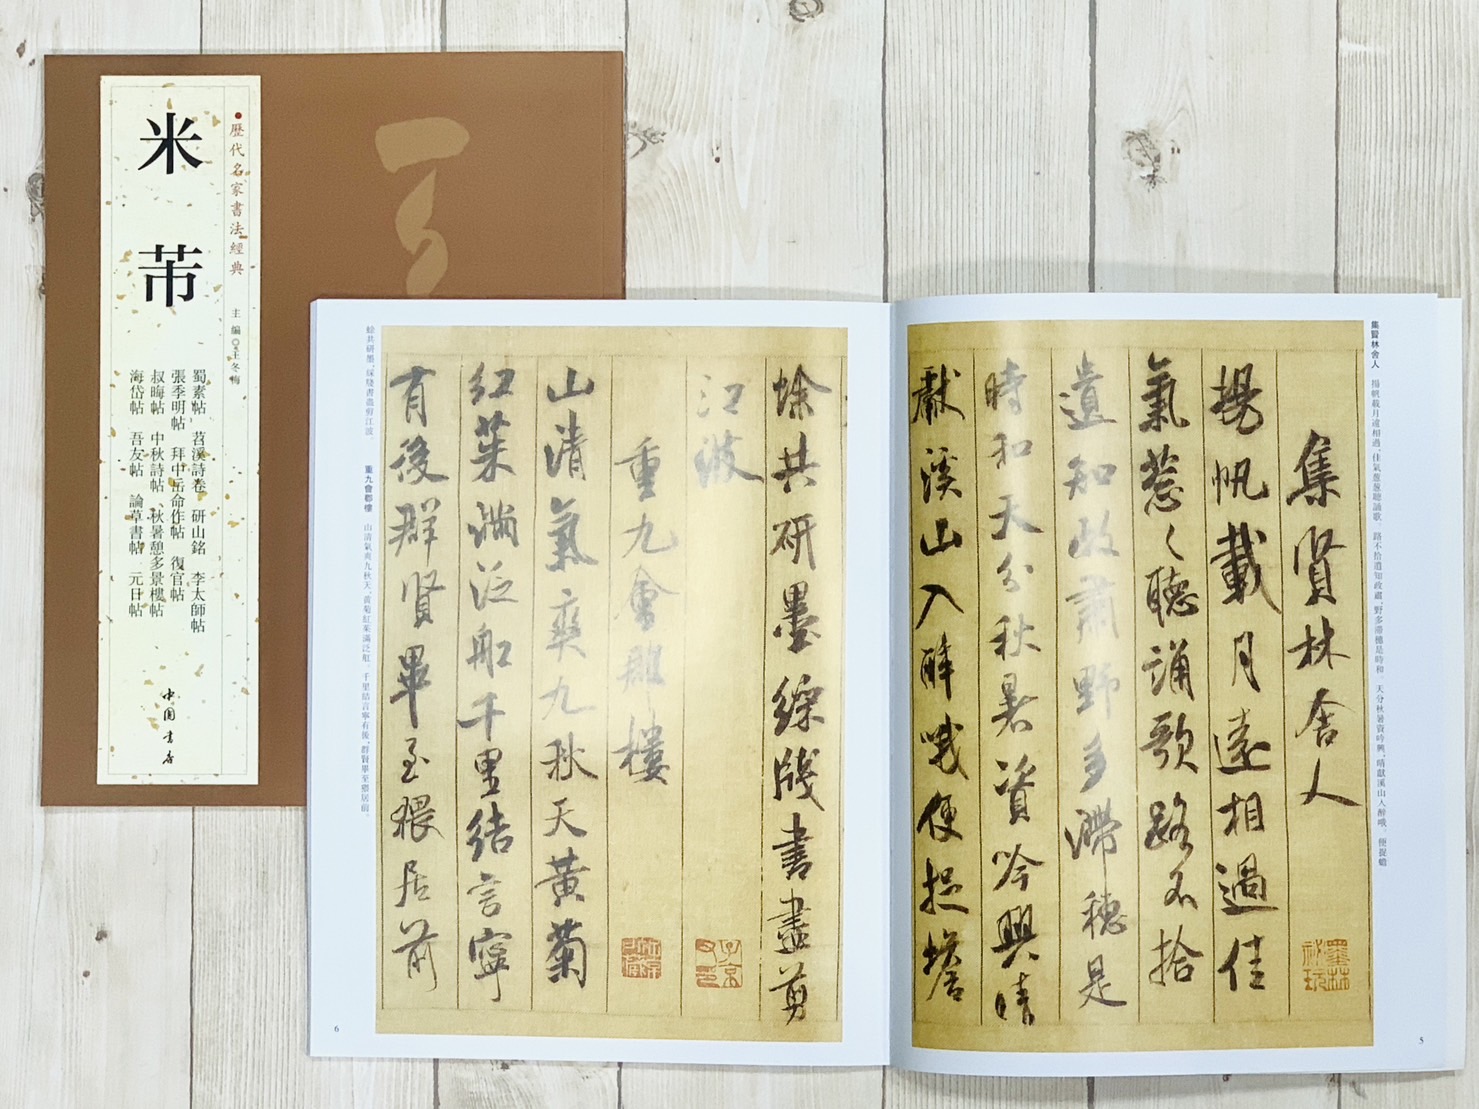 歷代名家書法經典
主編◎王冬梅
米芾
蜀素帖 苕溪詩卷 研山銘 李太師帖
張季明帖 拜中岳命作帖 復官帖
叔晦帖 中秋詩帖 秋暑憩多景樓帖
海岱帖 吾友帖 論草書帖 元日帖
中国書店
集賢林舍人 揚帆載月遠相過，佳氣蔥蔥聽誦歌。路不拾遺知政肅，野多滯穗是時和。天分秋暑資吟興，晴獻溪山入醉哦。便捉蟾
集賢林舍人
揚帆載月遠相過佳
氣蔥〻聽誦歌路不拾
遺知政肅野多滯穗是
時和天分秋暑資吟興晴
獻溪山入醉哦便捉蟾
墨林秘玩
5
蜍共研墨
綵牋書盡剪
江波
子京
重九會郡樓
山清氣爽九秋天黃菊
紅茱滿泛船千里結言寧
有後群賢畢至猥居前
蜍共研墨，綵牋書盡剪江波。
重九會郡樓 山清氣爽九秋天，黃菊紅茱滿泛船。千里結言寧有後，群賢畢至猥居前。
6